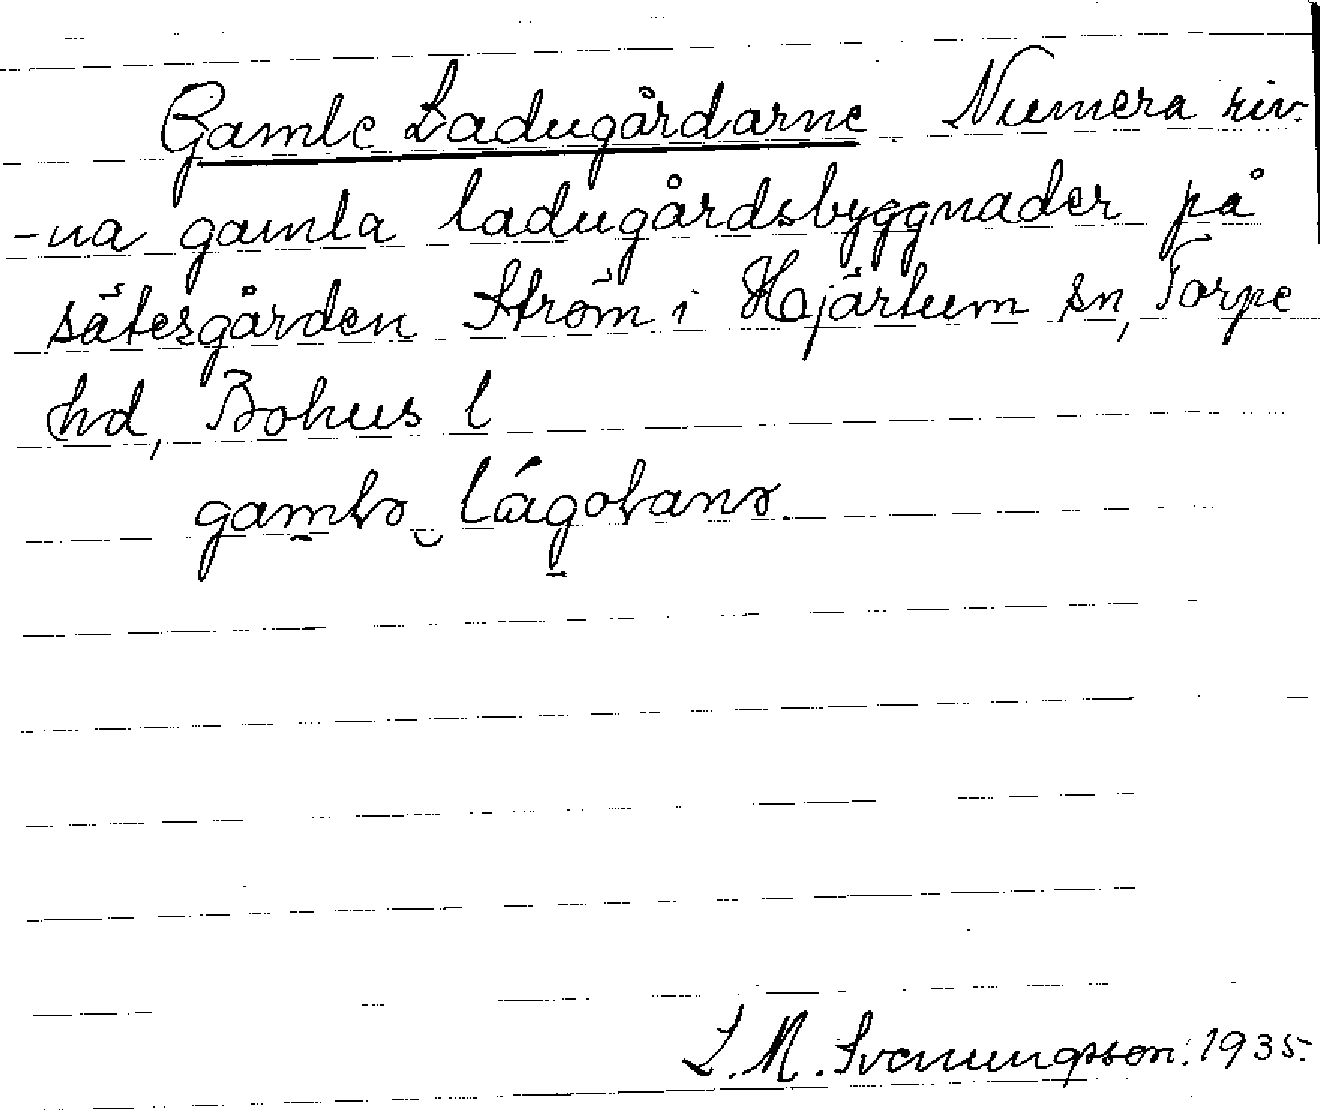 Gamle Ladugårdarne Numera riv-
-na gamla ladugårdsbyggnader på
sätesgården Ström i Hjärtum sn, Torpe
hd, Bohus l
L. M. Svenungsson. 1935.